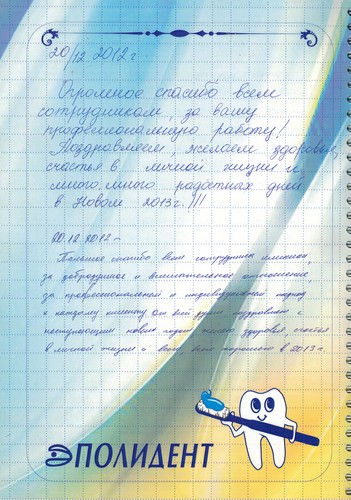 20/12 2012 г
Огромное спасибо всем
сотрудникам, за вашу
профессиональную работу!
Поздравляем, желаем здоровья,
счастья в личной жизни и
много, много радостных дней
в Новом 2013г.!!!
20.12.2012г
Большое спасибо всем сотрудникам клиники,
за добродушное и внимательное отношение,
за профессиональной и индивидуальной подход
к каждому клиенту. От всей души поздравляю с
наступающим новым годом желаю здоровья, счастья
в личной жизни и всего, всего хорошего в 2013 г.
ПОЛИДЕНТ